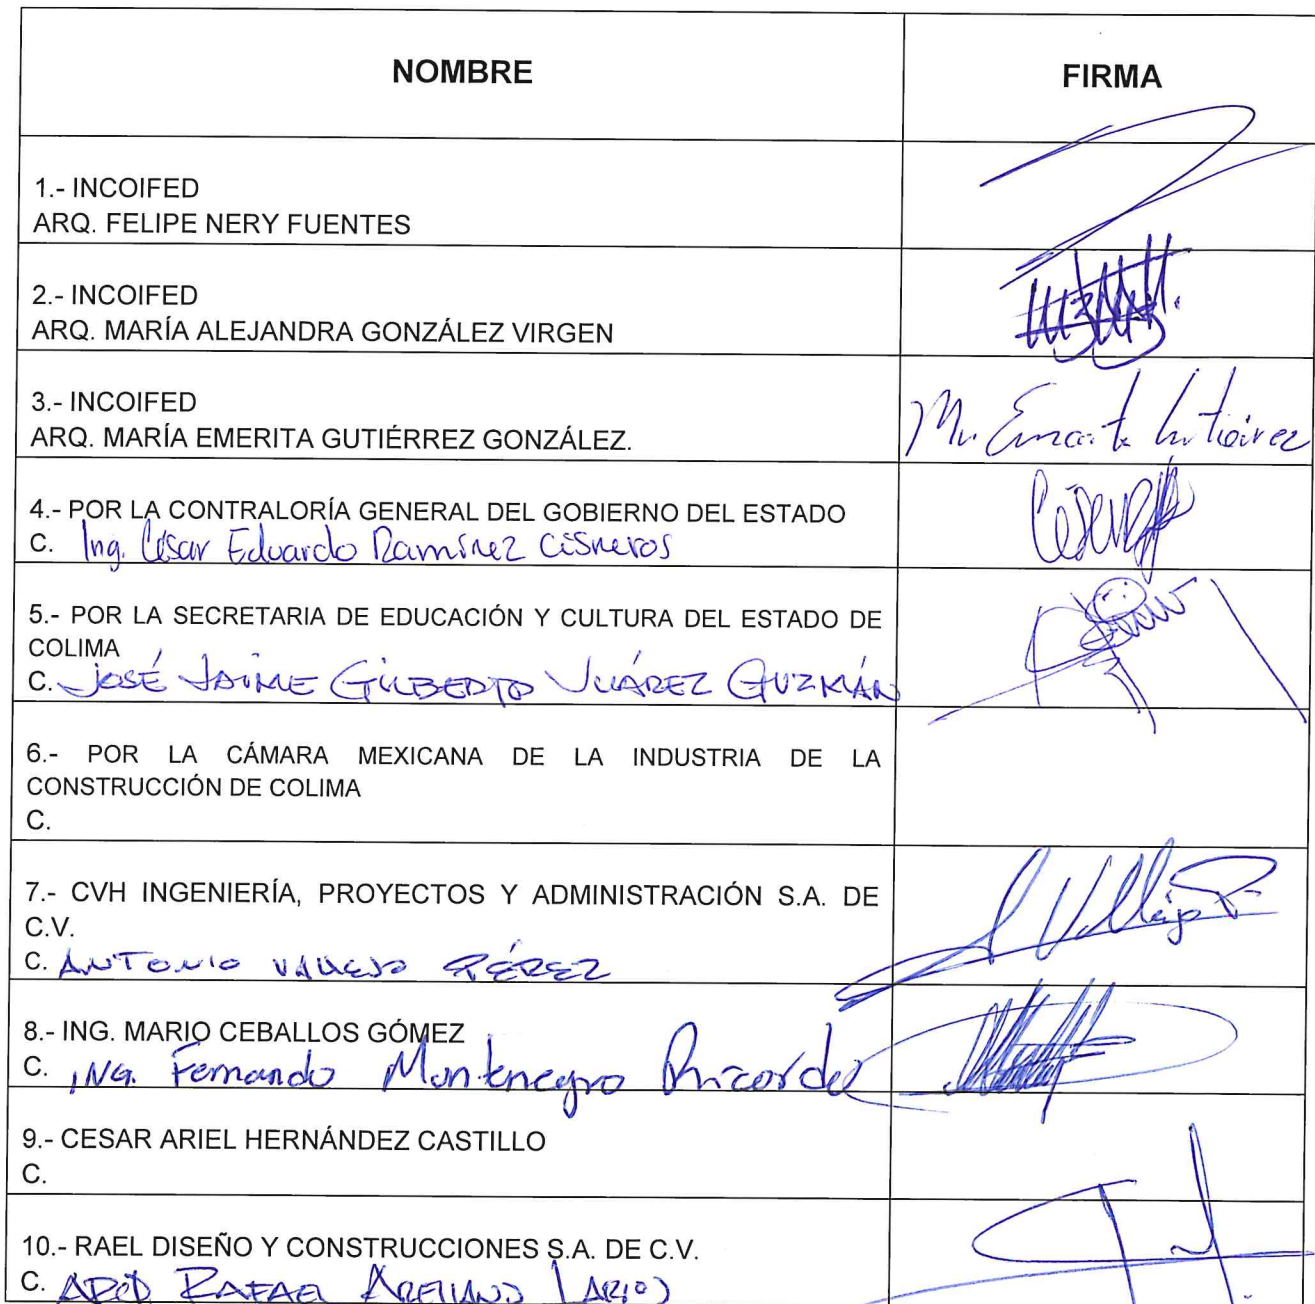 NOMBRE FIRMA
1.- INCOIFED
ARQ. FELIPE NERY FUENTES
2.- INCOIFED
ARQ. MARÍA ALEJANDRA GONZÁLEZ VIRGEN
3.- INCOIFED
ARQ. MARÍA EMERITA GUTIÉRREZ GONZÁLEZ.
4.- POR LA CONTRALORÍA GENERAL DEL GOBIERNO DEL ESTADO
C. Ing. César Eduardo Ramírez Cisneros
5.- POR LA SECRETARIA DE EDUCACIÓN Y CULTURA DEL ESTADO DE
COLIMA
C. JOSÉ JAIME GILBERTO JUÁREZ GUZMÁN
6.- POR LA CÁMARA MEXICANA DE LA INDUSTRIA DE LA
CONSTRUCCIÓN DE COLIMA
C.
7.- CVH INGENIERÍA, PROYECTOS Y ADMINISTRACIÓN S.A. DE
C.V.
C. ANTONIO VALLEJO PÉREZ
8.- ING. MARIO CEBALLOS GÓMEZ
C. ING. Fernando Montenegro
9.- CESAR ARIEL HERNÁNDEZ CASTILLO
C.
10.- RAEL DISEÑO Y CONSTRUCCIONES S.A. DE C.V.
C. RAFAEL ARELLANO